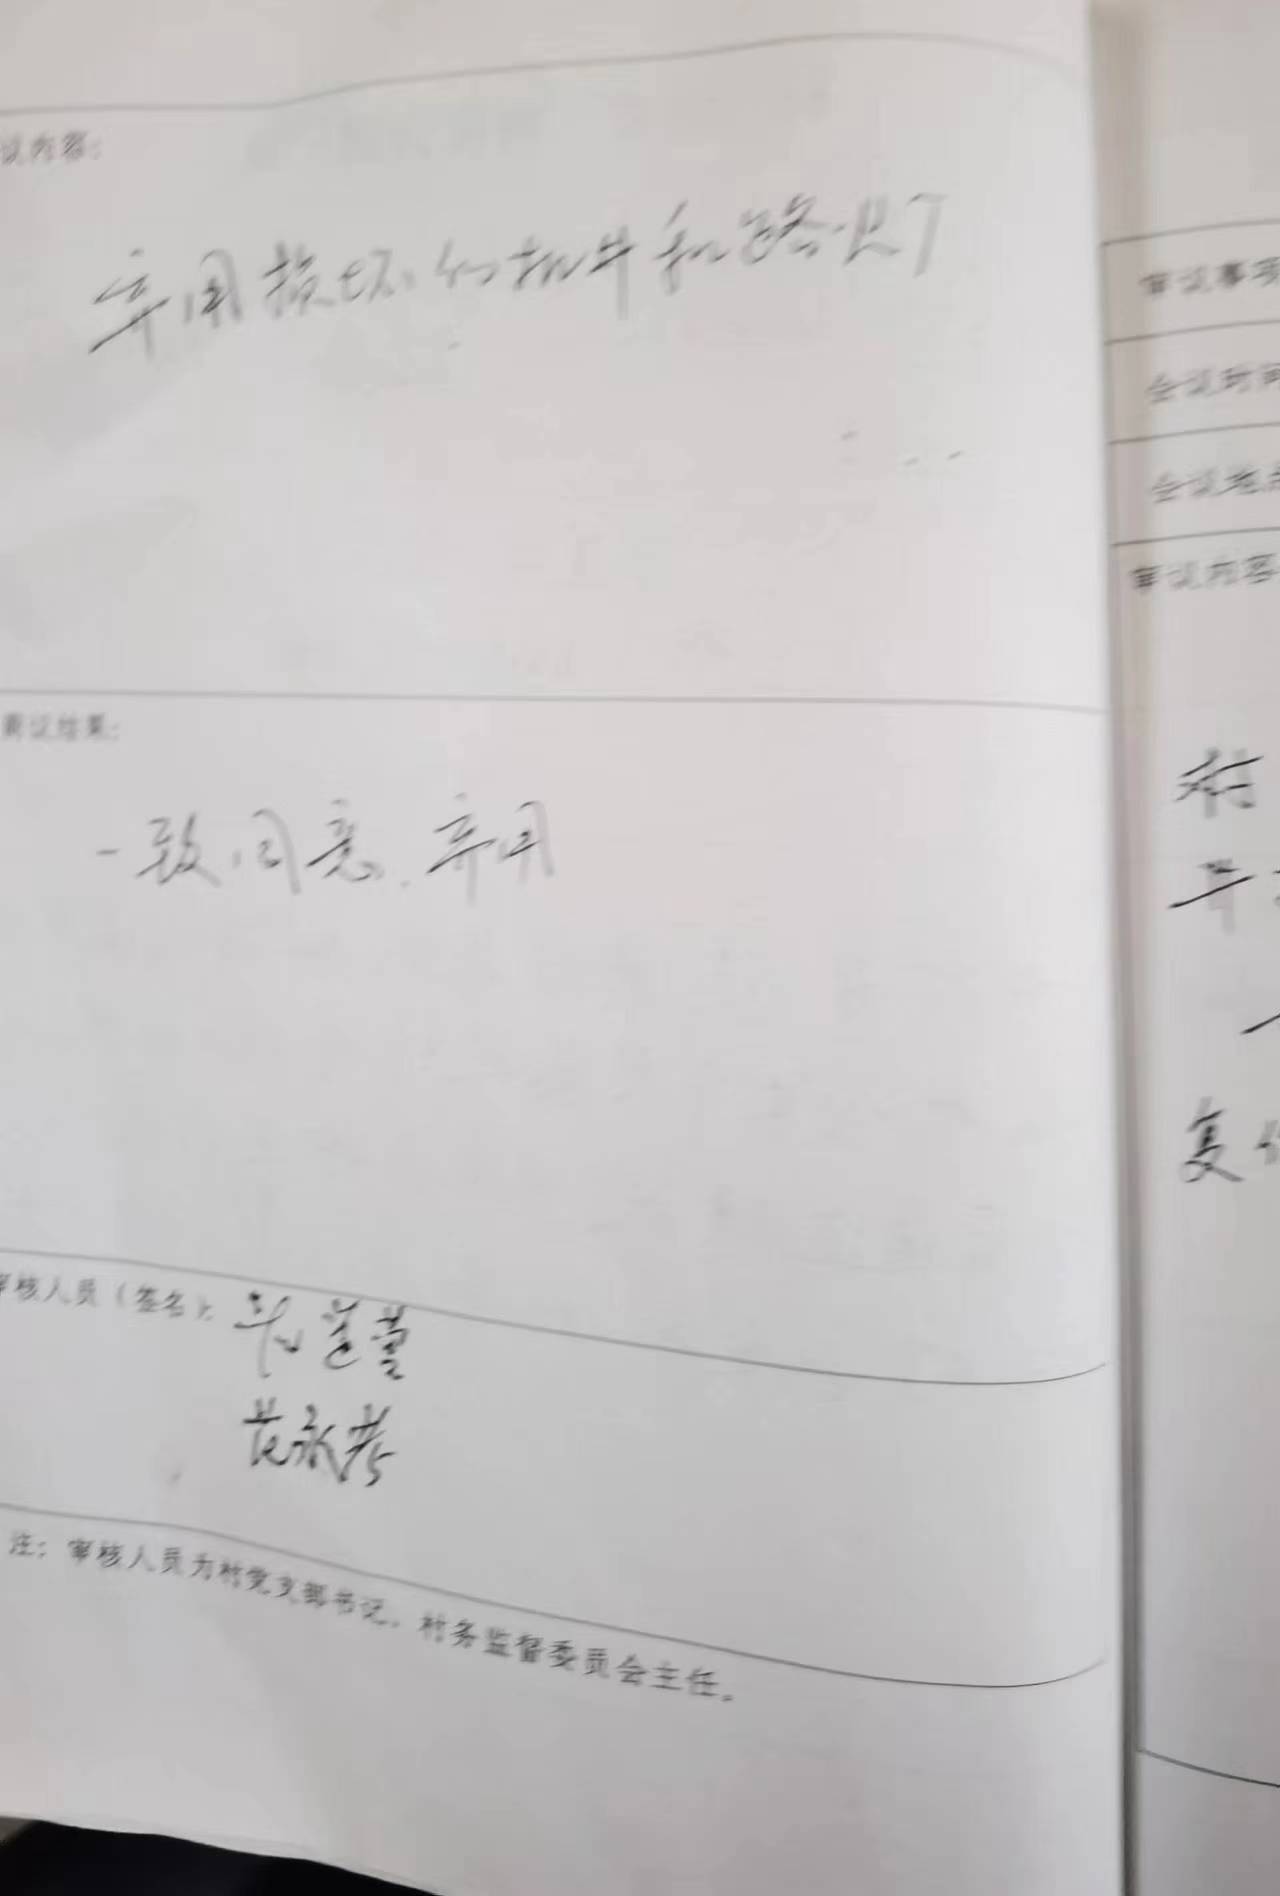 议内容:
弃用损坏的机井和路灯
商议结果:
一致同意.弃用
审核人员(签名):
范永
注:审核人员为村党支部书记、村务监督委员会主任。
审议事项
会议时间
会议地点
审议内容
村
复